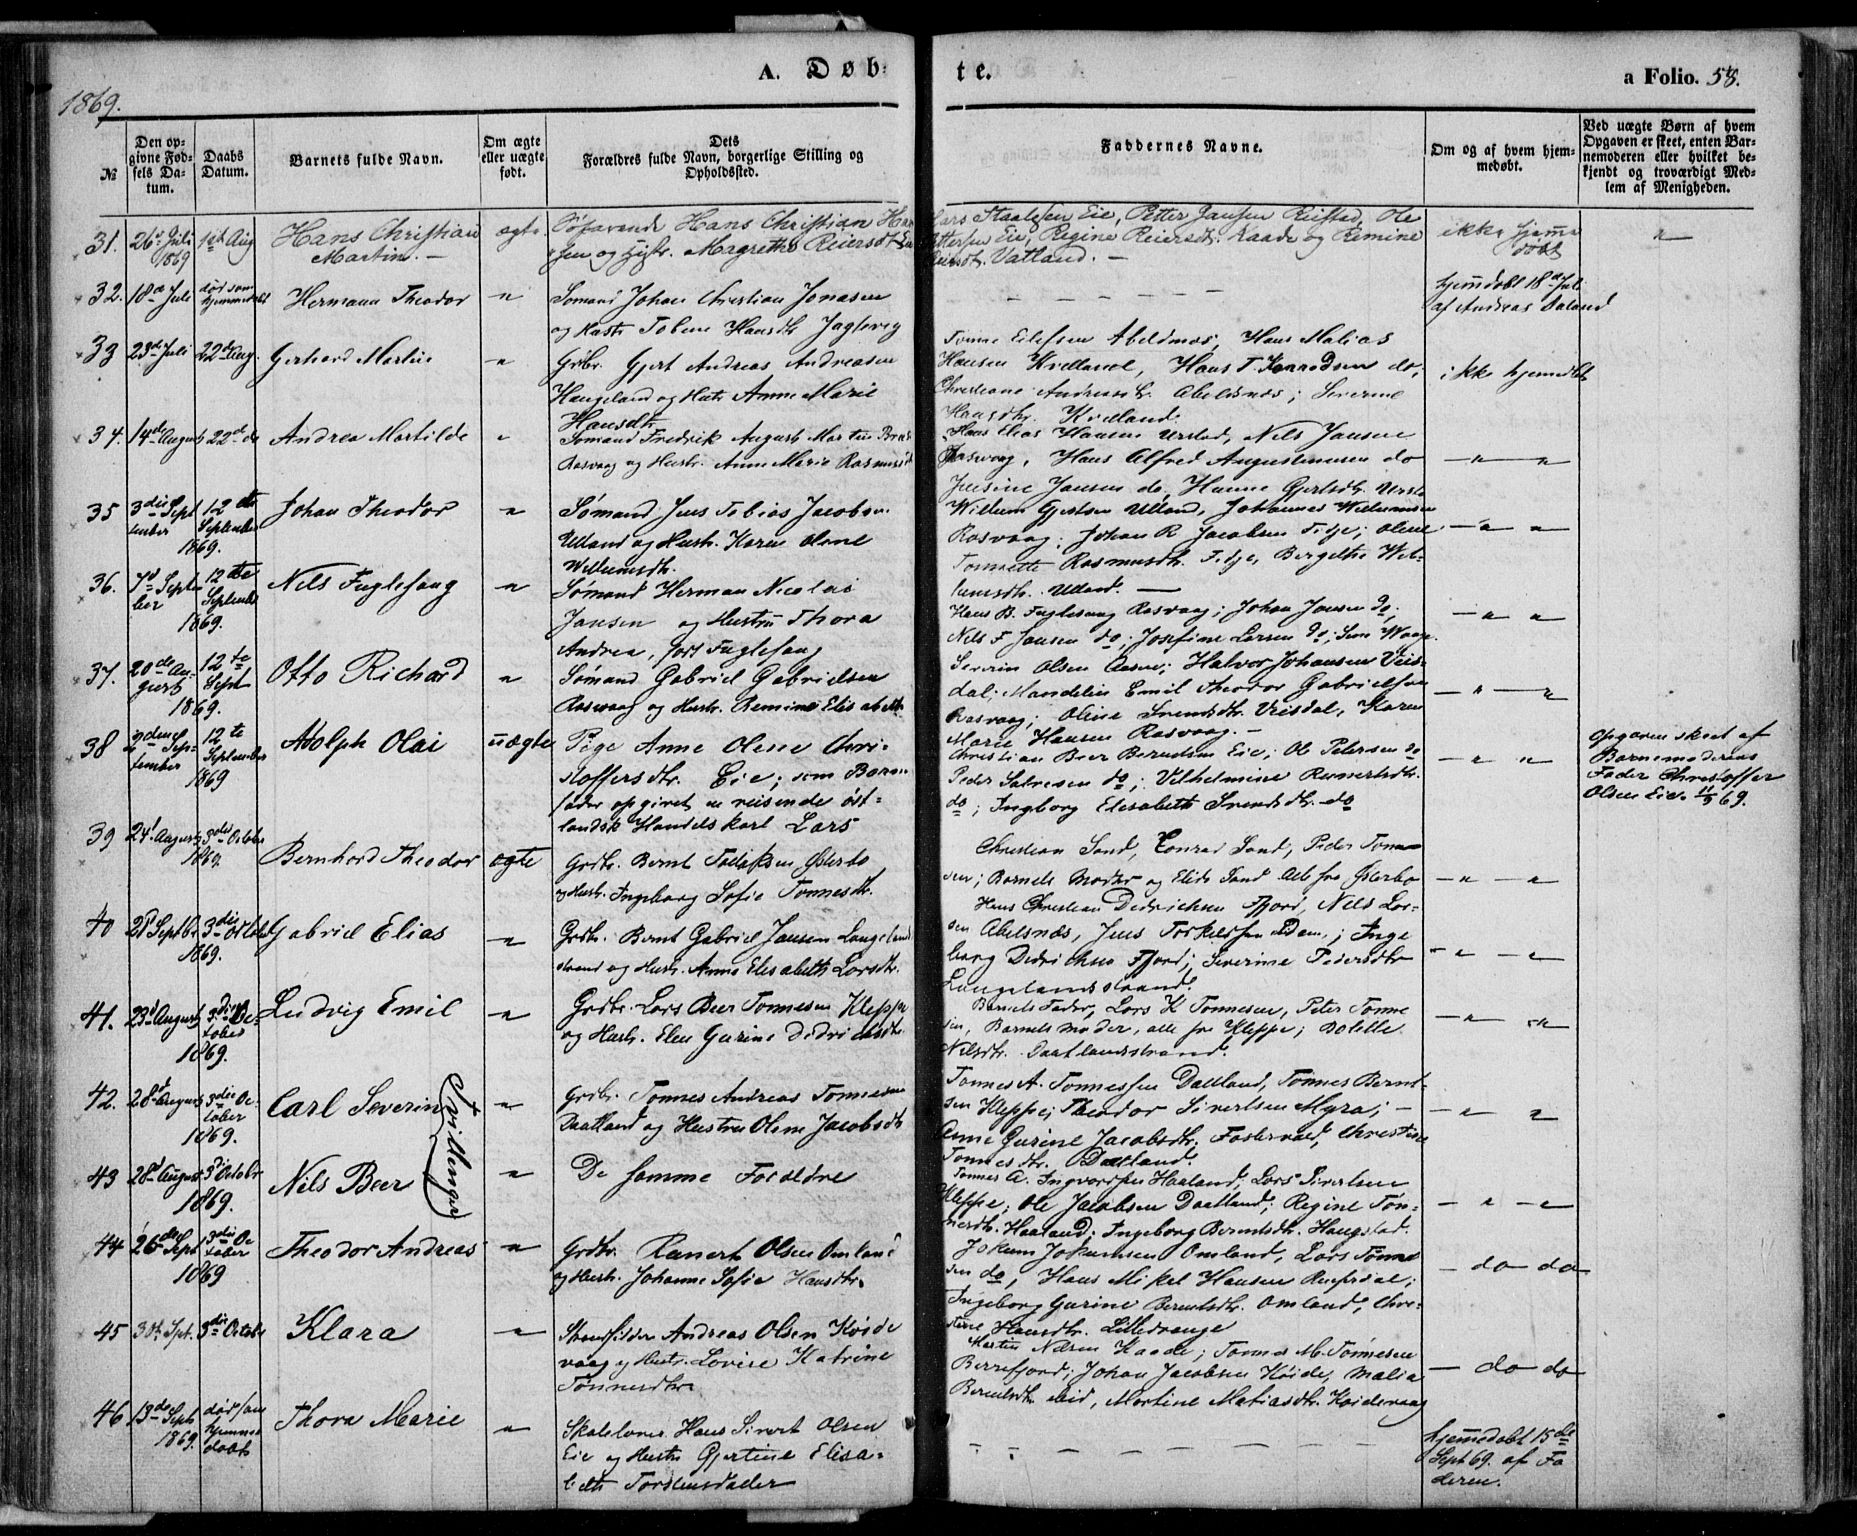 1869.
A. Døb-
te.
a Folio. 58.
№
Den op-
givne Fød-
sels Da-
tum.
Daabs
Datum.
Barnets fulde Navn.
Om ægte
eller uægte
født.
Dets
Forældres fulde Navn, borgerlige Stilling og
Opholdssted.
Faddernes Navne.
Om og af hvem hjem-
medøbt.
Ved uægte Børn af hvem
Opgaven er skeet, enten Bar-
nemoderen eller hvilket be-
kjendt og troværdigt Med-
lem af Menigheden.
31.
26 Juli
1869
1st Aug
Hans Christian
Martin. -
ægte
Søfarende Hans Christian Han
sen og Hstr. Magrethe Reiersdt
Lars Staalesen Eie, Petter Jansen Reistad, Ole
Pettersen Eie, Regine Reiersdt. Kaade og Remine
Reiersdt. Vatland. -
ikke hjemme
døbt
"
32.
18de Juli
død som
hjemmedøbt
Hermann Theodor
"
Sømand Johan Christian Jonasen
og Hustr Tobine Hansdtr Jagtevig
- - - - - -
hjemdøbt 18de Juli
af Andreas Daland
33
23de Juli
22de Aug.
Gerhard Martin
"
Grbr. Gjert Andreas Andreasen
Haugeland og Hstr Anne Marie
Hansdtr
Tonne Eilefsen Abelsnæs, Hans Malias
Hansen Kvelland, Hans T. Konradsen do,
Christiane Andreasdt. Abelsnæs; Severine
Hansdtr. Kvelland.
ikke hjemdbt
34.
14de August
22de do
Andrea Martilde
"
Sømand Fredrik August Martin
Rasvaag og Hustr. Anne Marie Rasmusdt
Hans Elias Hansen Urstad, Nils Jansen
Rasvaag, Hans Alfred Augustinusen do
Jensine Jansen do, Hanne Gjertsdt. Ursta
- " - "
35
3die Sept
tember
12te
September
1869.
Johan Theodor
"
Sømand Jens Tobias Jacobsen
Utland og Hustr. Karen Olene
Willumsdt.
Willum Gjertsen Utland, Johannes Willumsen
Rasvaag; Johan R Jacobsen Fidje; Olene
Tonnette Rasmusdt. Fidje, Bergithe Wil-
lumsdt. Utland. -
- " "
36.
7d Septem
ber
12te
September
1869.
Nils Fuglefang
"
Sømand Herman Nicolai
Jansen og Hustru Thora
Andrea, født Fuglefang
Hans B. Fuglevaag Rasvaag; Johan Jansen do;
Nils F Jansen do; Josefine Larsen do;
- " "
37.
20de Au-
gust
12te
Sept
1869.
Otto Richard
"
Sømand Gabriel Gabrielsen
Rasvaag og Hustr. Remine Elisabeth
Severin Olsen Aasne; Halvor Johansen Veis-
dal; Mandelin Emil Theodor Gabrielsen
Rasvaag; Oline Svendsdtr. Veisdal, Karen
Marie Hansen Rasvaag. -
- " - "
38
2den Sep-
tember
12te
September
1869
Adolph Olai
uægte
Pige Anne Olene Chri-
stoffersdtr. Eie; som Barne
fader opgivet en reisende øst-
landsk Handelskarl Lars
Christian Beer Berntsen Eie; Ole Petersen do
Peder Salvesen do; Vilhelmine Reinertsdtr.
do; Ingborg Elisabeth Svendsdtr. do
- " "
Opgaven skeet af
Barnemoderens
Fader Christoffer
Olsen Eie 11/9 69.
39
24d August
1869.
3die October
Bernhard Theodor
ægte
Grdbr. Bernt Tollefsen Østerbo
og Hustr. Ingeborg Sofie Tonnesdtr.
Christian Sand, Conrad Sand, Peder Tonne-
sen; Barnets Moder og Elida Sand Alle fra Østerbo
- " - "
40
21d Septbr
3die October
1869.
Gabriel Elias
"
Grdbr. Bernt Gabriel Jansen Langeland
strand og Hustr. Anne Elisabeth Larsdtr.
Hans Christian Dedrichsen Fjord, Nils Lar-
sen Abelsnæs, Jens Torkelsen Edam; Inge
borg Dedrichsen Fjord; Severine Pedersdtr
Langelandsstrand.
- " - "
41.
23d August
1869.
3die Oc-
tober
Ludvig Emil
"
Grdbr. Lars Beer Tonnesen Kleppe
og Hustr. Elen Gurine Didrichsdtr
Barnets Fader, Lars K Tonnesen, Peter Tonne
sen, Barnets Moder, alle fra Kleppe; Bolette
Nilsdtr. Daatlandsstrand.
- " - "
42.
28d August
1869.
3die Oc-
tober
Carl Severin
Tvillinger
"
Grdbr. Tonnes Andreas Tonnesen
Daatland og Hustru Olene Jacobsdt
Tonnes A. Tonnessen Daatland, Tonnes Bernt-
sen Kleppe; Theodor Sivertsen Myra; -
Anne Gurine Jacobsdtr. Fosterval, Christine
Tonnesdtr. Daatland.
- " "
43
28d August
1869.
3die Octobr
Nils Beer
"
De samme Forældre
Tonnes A. Ingvordsen Haaland; Lars Sivertsen
Kleppe; Ole Jacobsen Daatland; Regine Ton-
nesdtr. Haaland; Ingeborg Berntsdtr. Haugstad.
- " - "
44
26de Sept
1869
3die Oc-
tober
Theodor Andreas
"
Grdbr. Reinert Olsen Omland
og Hustr. Johanne Sofie Hansdtr.
Jokum Jokumsen Omland, Lars Tønne
sen do, Hans Mikel Hansen
Ingeborg Gurine Berntsdtr. Omland, Chri-
stine Hansdtr. Lilledrange
- do do
45
3d Sept.
3die Octobr
Klara
"
Strandsidder Andreas Olsen Koide
vaag og Hustr. Lovise Katrine
Tønnesdtr.
Martin Næsen Kaade; Tonnes M. Tønnesen
Berrefjord; Johan Jacobsen Koide, Malia
Berntsdtr. Eid, Martine Matiasdtr. Koidevaag
- do do
46
13de Sept
1869.
død som
hjemme
døbt
Thora Marie
"
Skolelærer Hans Sivert Olsen
Eie og Hustr Gjertine Elisa-
beth Torstensdatter
- - - - - - -
hjemmedøbt 15de
Sept 69. af Fa
deren.